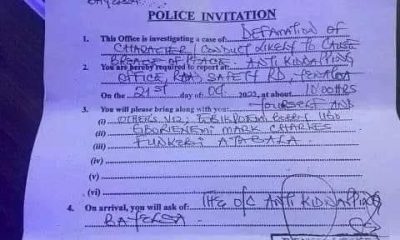 BAYELSA
POLICE INVITATION
1. This Office is investigating a case of: DEFAMATION OF
CHARACTER, CONDUCT LIKELY TO CAUSE
BREACH OF PEACE.
2. You are hereby required to report at: ANTI KIDNAPPING
OFFICE, SAFETY RD,
On the 21st day of Oct 2022, at about 10:00HRS
3. You will please bring along with you: YOURSELF AND
(i) OTHERS VIZ;
(ii) MARK CHARLES
(iii) FUNKERI ATABALA
(iv)
(v)
(vi)
4. On arrival, you will ask of: THE O/C ANTI KIDNAPPING
BAYELSA